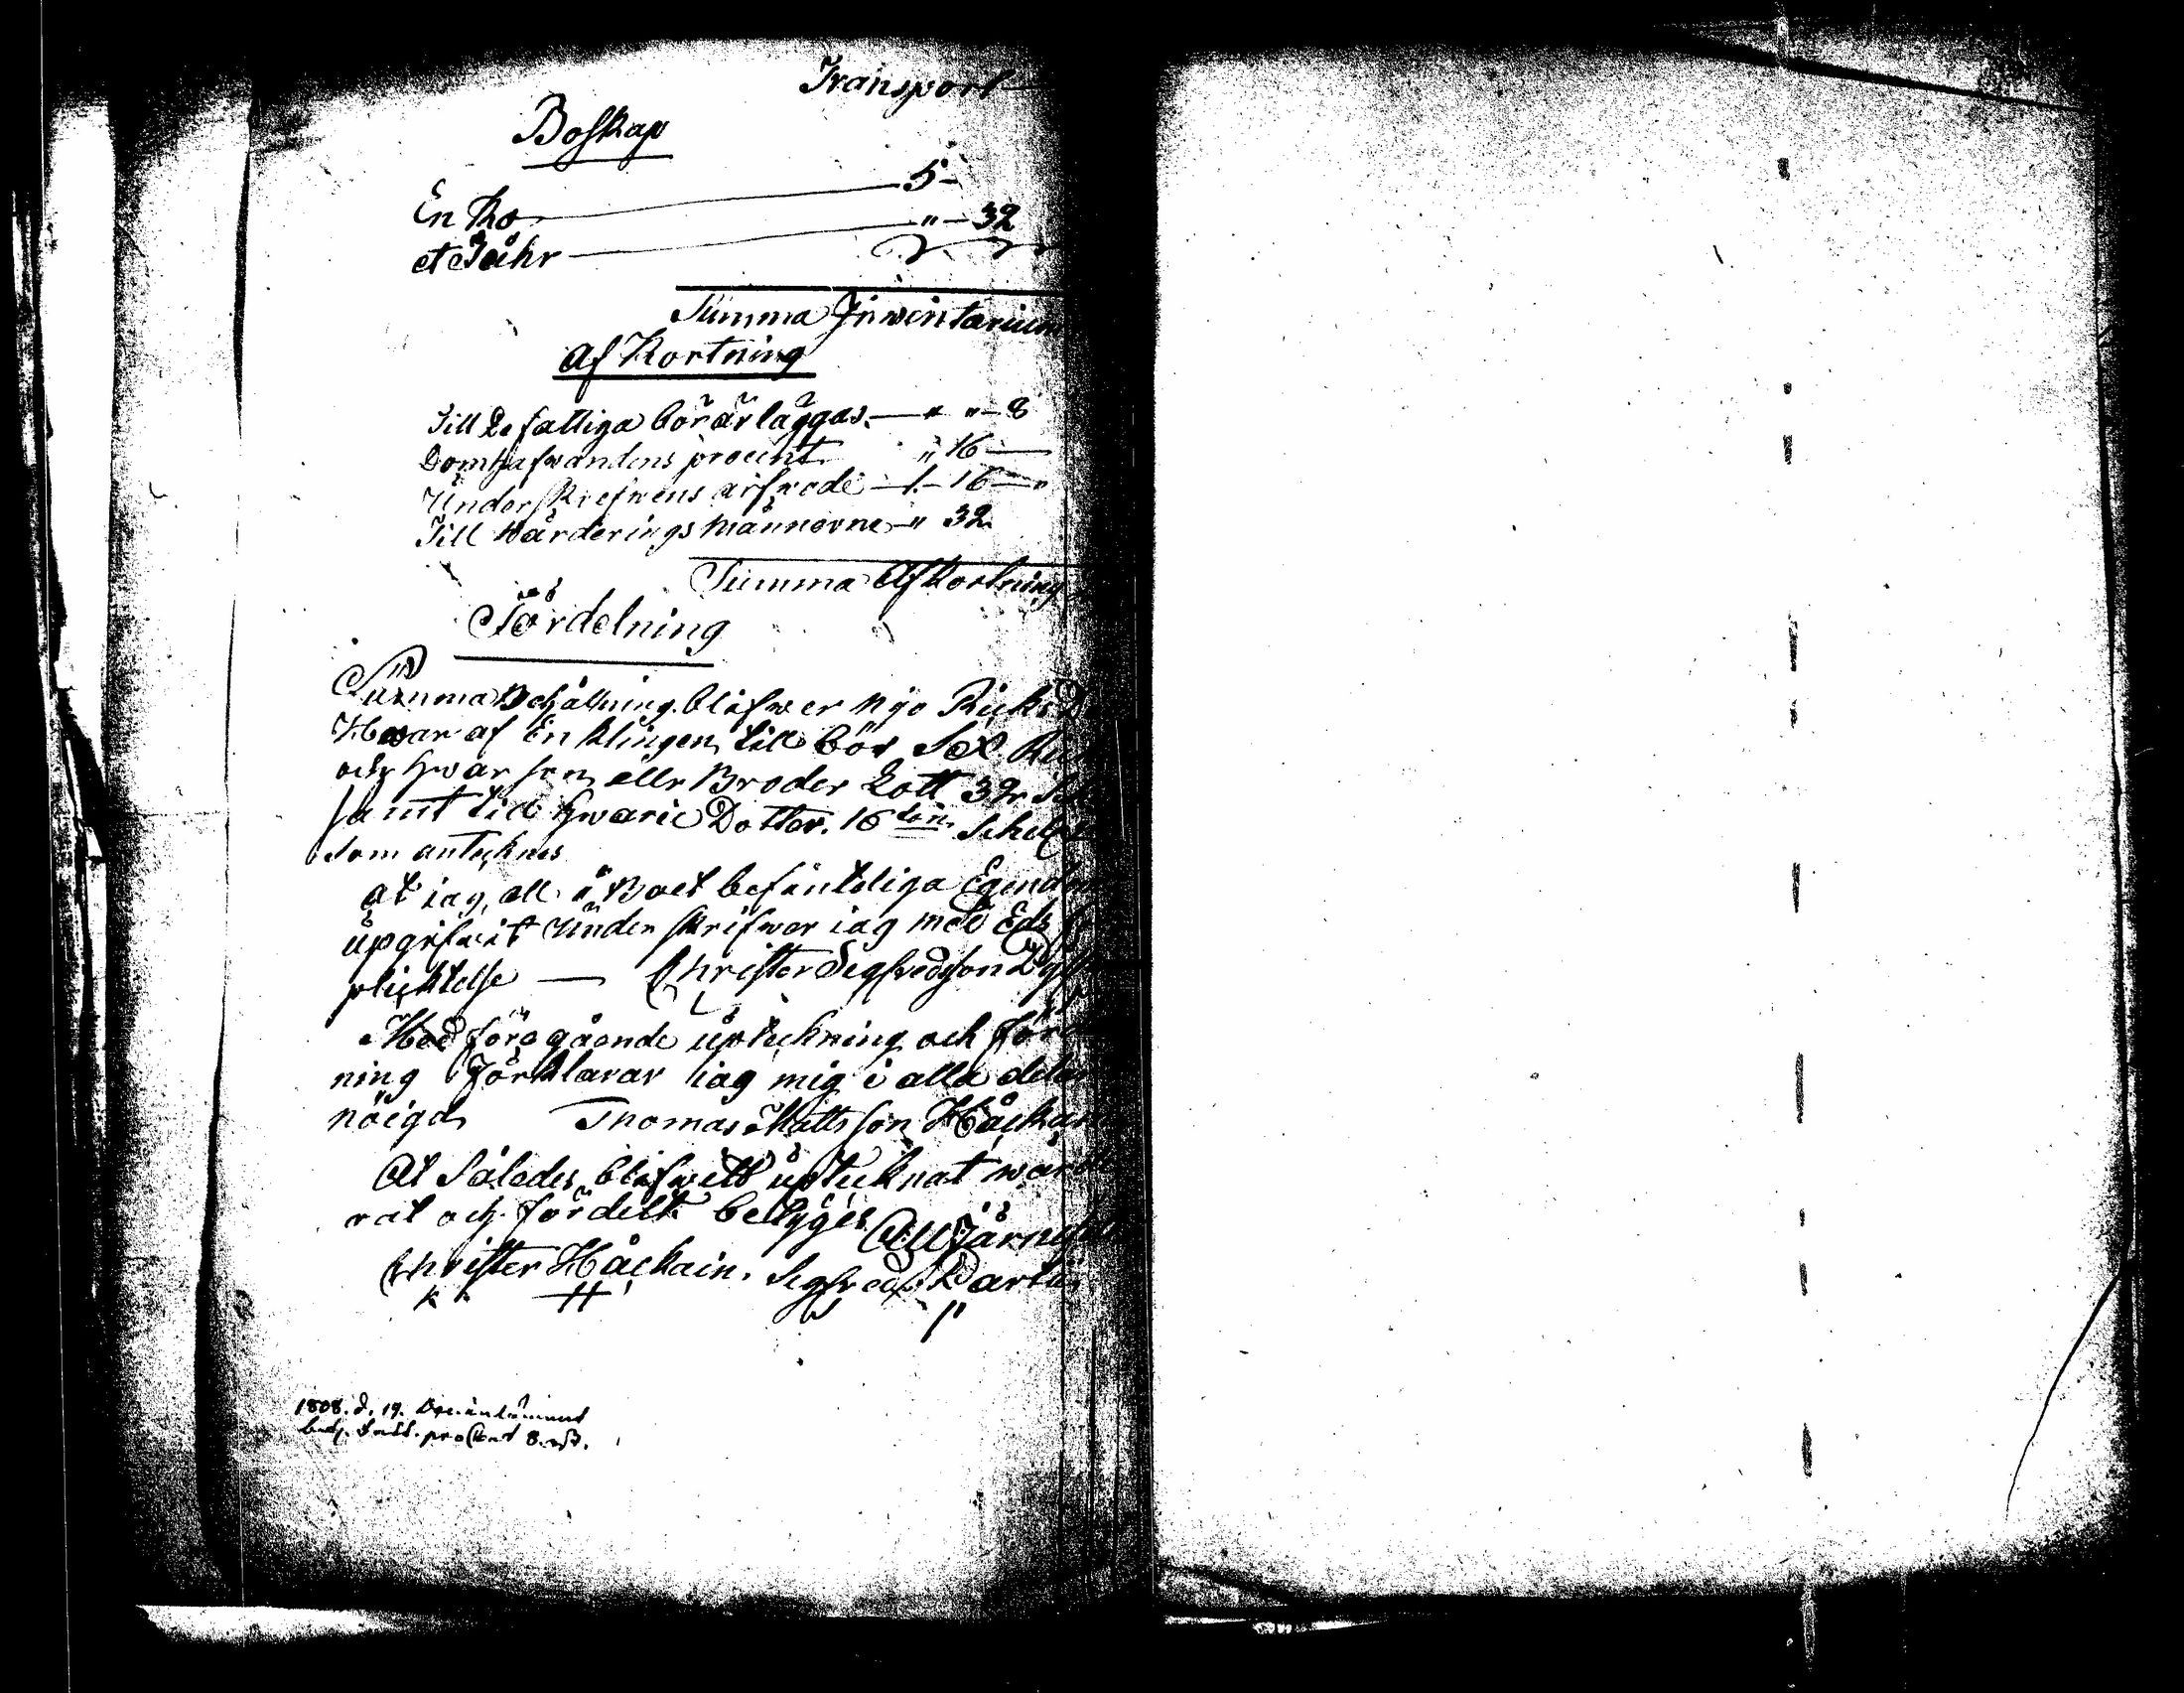 Transport
Boskap
En Ko 5 -
et Fåhr " - 32
Summa Inventarium
Af Kortning
Till De fattiga bör ärläggas - " " - 8
Domhafwandens procent " 16 -
Underskrefwens arfwode - 1 - 16 - "
Till Wärderings männerne - " 32
Summa Af Kortning
Fördelning
Summa Behållning blifwer Nijo Riks
Hwar af Enklingen till bör Sex
och hwar son eller Broder Lott 32
samt till hwarie Dotter 16 ton
som antecknes
at iag all i Boet befinteliga Egendom
upgifwit under skrifwer iag med Eds
pliktelse — Christer Segfredsson
Med föregående upteckning och för
ning Förklarar iag mig i alla delar
nöigd Thomas Mattsson Håckain
At Således blifwitt uptecknat wärde
rat och fördelt betÿges
Christer Håckain. Segfred
H
1808. d. 19.